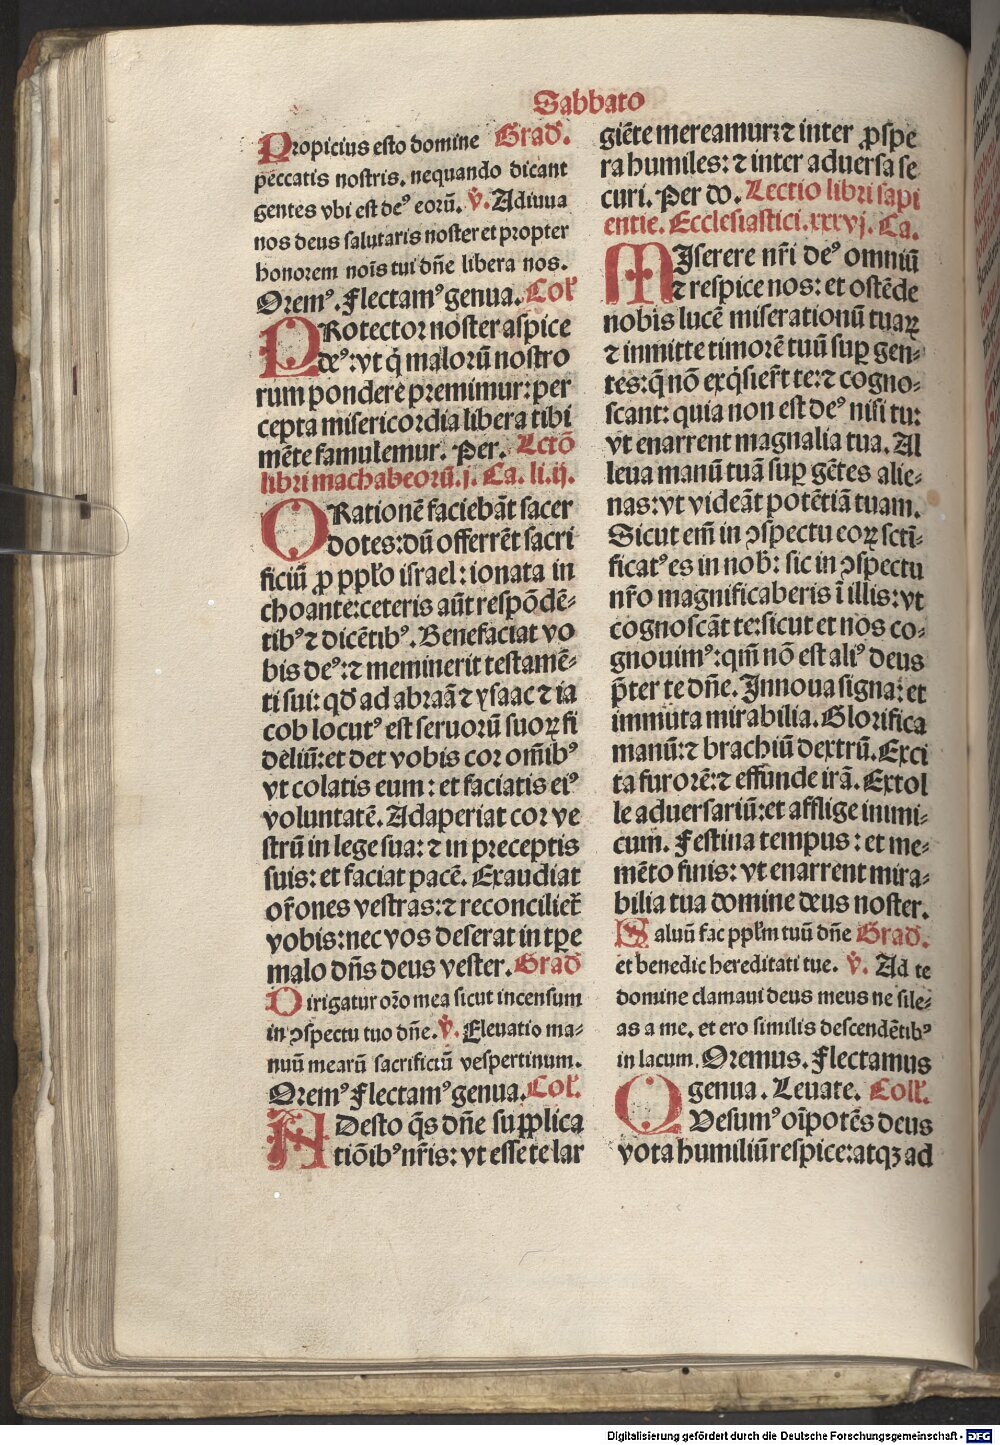 Sabbato
Propicius esto domine Grad̄.
peccatis nostris. nequando dicant
gentes vbi est deꝰ eorū. v̄. Adiuua
nos deus salutaris noster et propter
honorem nois̄ tui dn̄e libera nos.
Oremꝰ. Flectamꝰ genua. Col̄
PRotector noster aspice
deꝰ: vt q̇ malorū nostro
rum pondere premimur: per
cepta misericordia libera tibi
mēte famulemur. Per. Lctō
libri machabeorū. j. Ca. li. ij.
ORationē faciebāt sacer
dotes: dū offerrēt sacri
ficiū ꝓ ppl̄o israel: ionata in
choante: ceteris aūt respōdē-
tibꝰ ⁊ dicētibꝰ. Benefaciat vo
bis deꝰ: ⁊ meminerit testamē-
ti sui: qd̄ ad abraā ⁊ ysaac ⁊ ia
cob locutꝰ est seruorū suoꝝ fi
deliū: et det vobis cor om̄ibꝰ
vt colatis eum: et faciatis eiꝰ
voluntatē. Adaperiat cor ve
strū in lege sua: ⁊ in preceptis
suis: et faciat pacē. Exaudiat
or̄ones vestras: ⁊ reconciliet̄
vobis: nec vos deserat in tp̄e
malo dn̄s deus vester. Grad̄
Dirigatur or̄o mea sicut incensum
in ↄspectu tuo dn̄e. v̄. Eleuatio ma-
nuū mearū sacrificiū vespertinum.
Oremꝰ Flectamꝰ genua. Col̄.
ADesto q̄s dn̄e supplica
tiōibꝰ nr̄is: vt esse te lar
giēte mereamur: ⁊ inter ꝓspe
ra humiles: ⁊ inter aduersa se
curi. Per do. Lectio libri sapi
entie. Ecclesiastici. xxxvj. Ca.
MIserere nr̄i deꝰ omniū
⁊ respice nos: et ostēde
nobis lucē miserationū tuaꝝ
⁊ inmitte timorē tuū suꝑ gen-
tes: q̄ nō exq̇sier̄t te: ⁊ cogno-
scant: quia non est deꝰ nisi tu:
vt enarrent magnalia tua. Al
leua manū tuā suꝑ gētes alie-
nas: vt videāt potētiā tuam.
Sicut em̄ in ↄspectu eoꝝ scti-̄
ficatꝰ es in nob̄: sic in ↄspectu
nr̄o magnificaberis ī illis: vt
cognoscāt te: sicut et nos co-
gnouimꝰ: qm̄ nō est aliꝰ deus
p̄ter te dn̄e. Innoua signa: et
immuta mirabilia. Glorifica
manū: ⁊ brachiū dextrū. Exci
ta furorē: ⁊ effunde irā. Extol
le aduersariū: et afflige inimi-
cum. Festina tempus: et me-
mēto finis: vt enarrent mira-
bilia tua domine deus noster.
Saluū fac ppl̄m tuū dn̄e Grad̄.
et benedic hereditati tue. v̄. Ad te
domine clamaui deus meus ne sile-
as a me. et ero similis descendētibꝰ
in lacum. Oremus. Flectamus
genua. Leuate. Coll̄.
QVesumꝰ oīpotēs deus
vota humiliū respice: atqꝫ ad
Digitalisierung gefördert durch die Deutsche Forschungsgemeinschaft - DFG